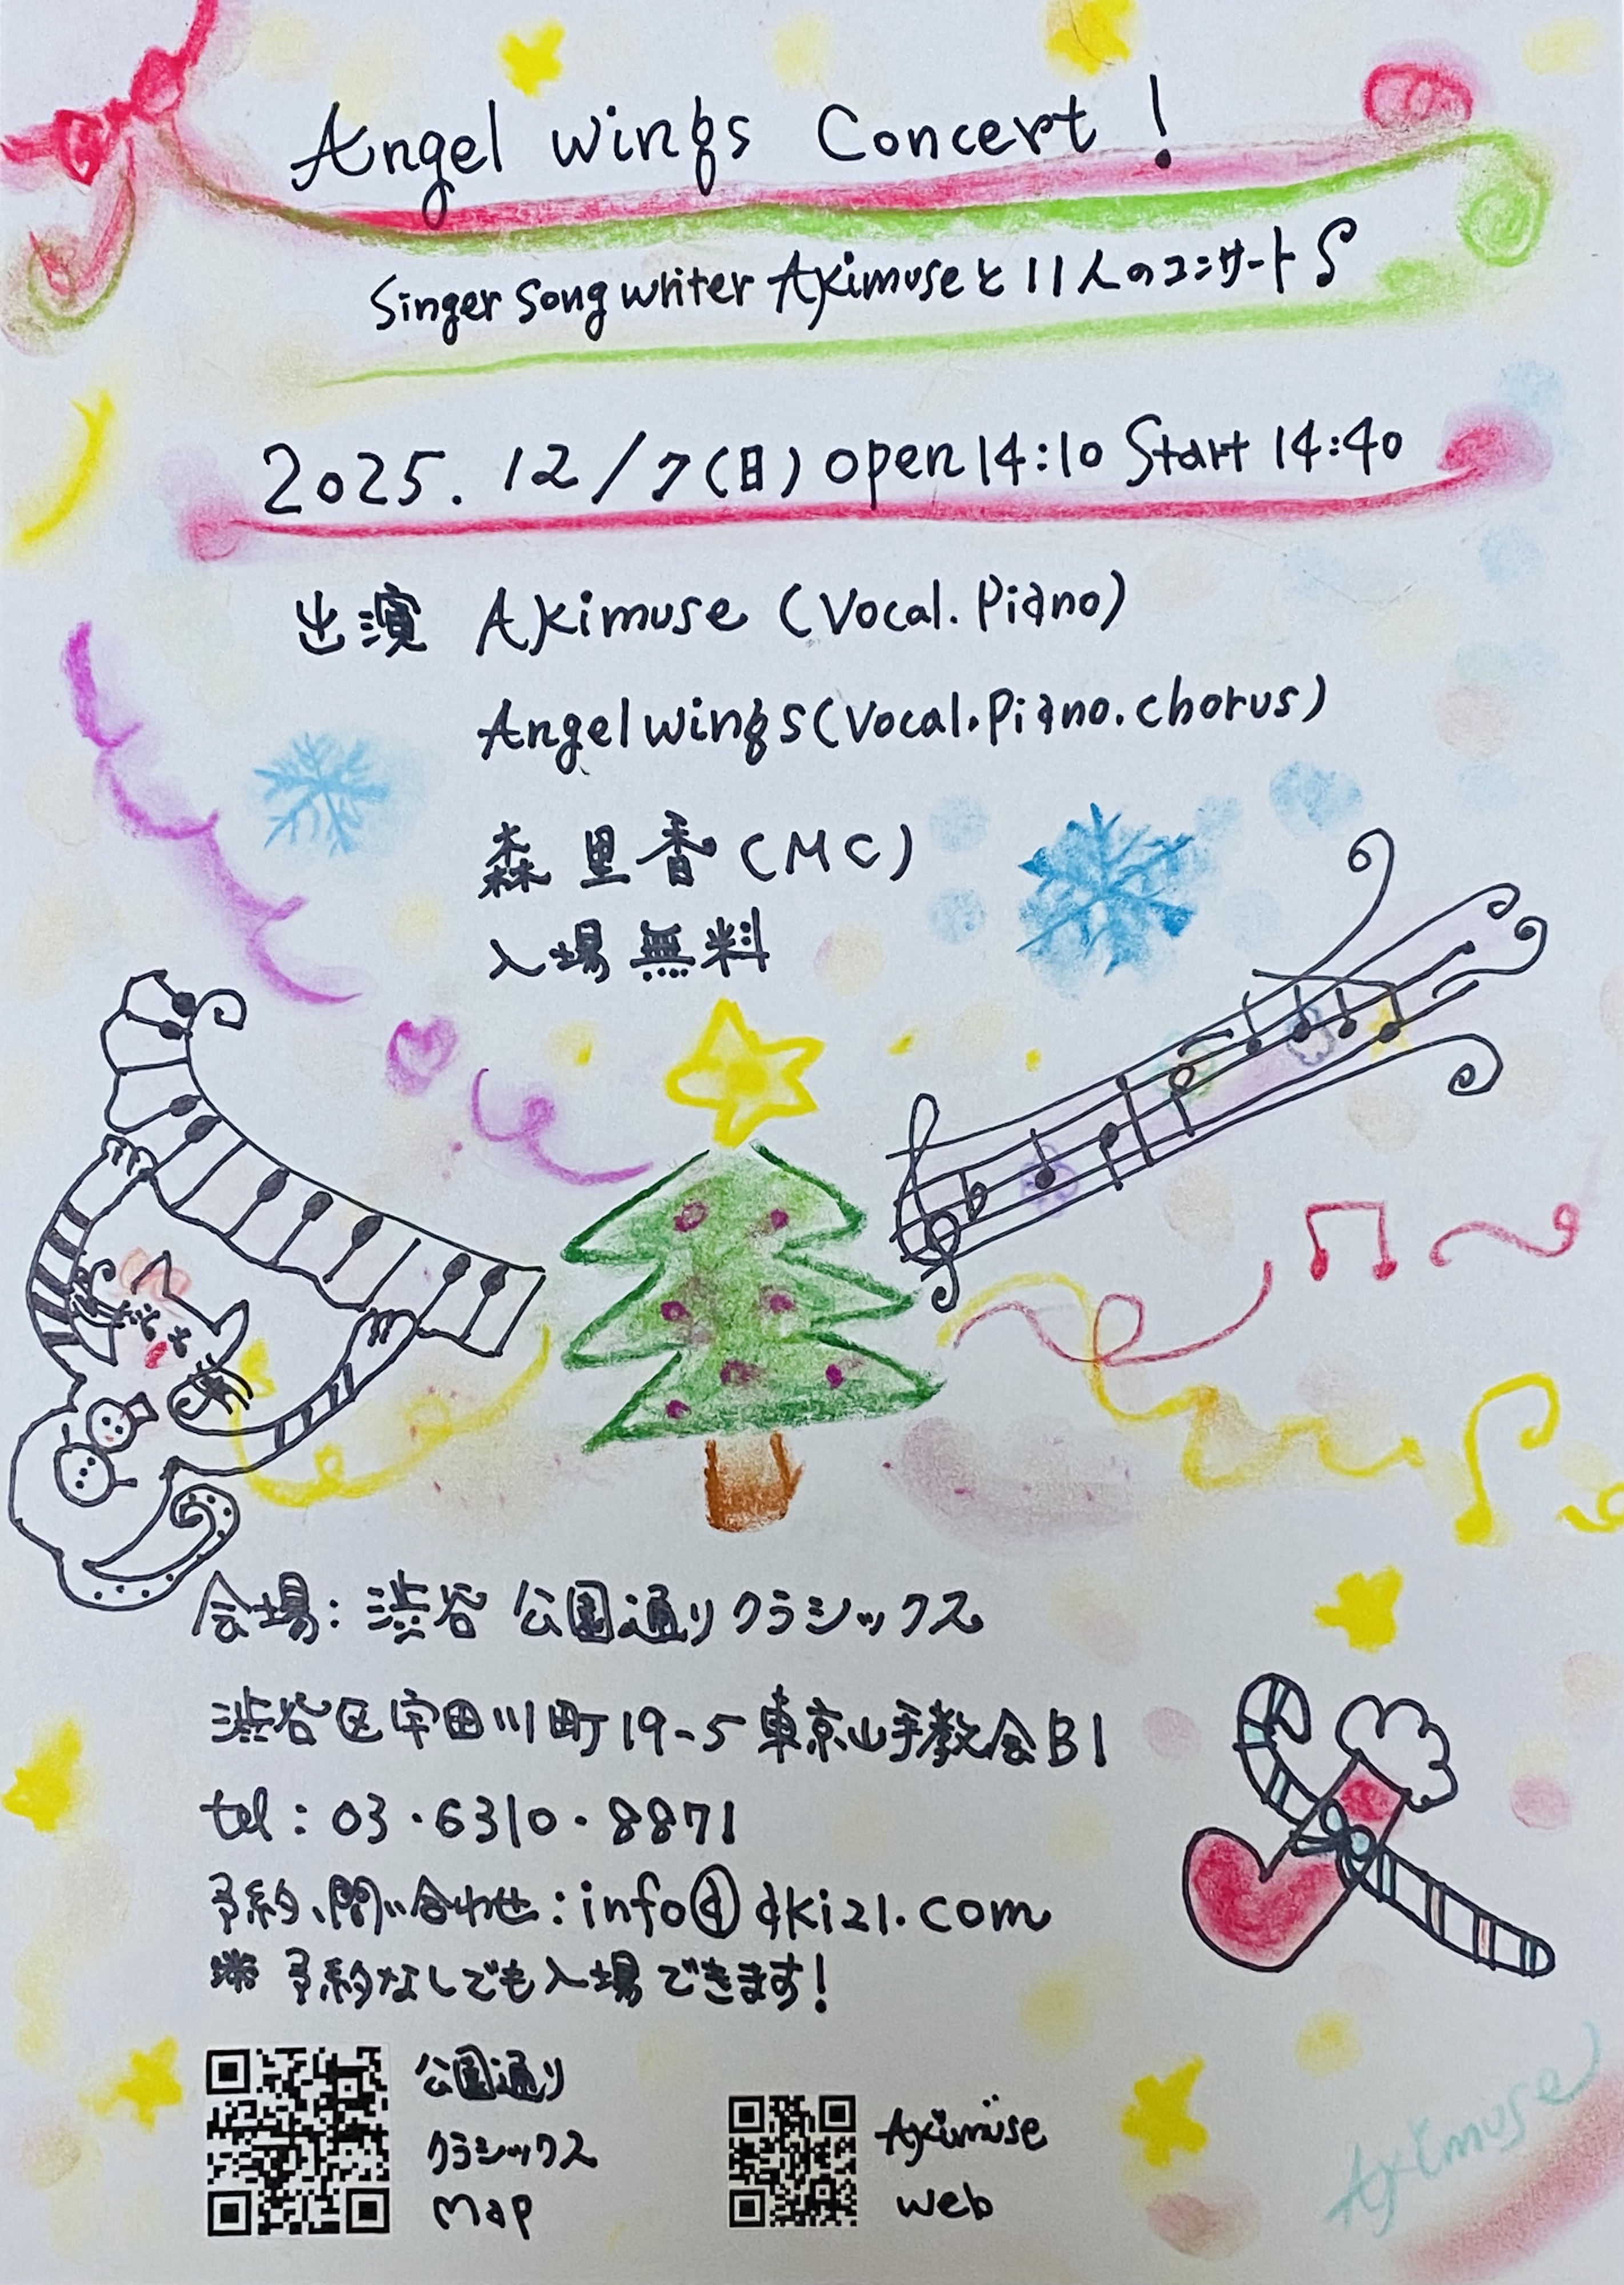 Angel wings Concert!
Singer Song writer Akimuseと11人のコンサート
2025. 12/7(日) open 14:10 Start 14:40
出演 Akimuse (Vocal. Piano)
Angel wings (Vocal. Piano. chorus)
森 里香 (MC)
入場無料
会場: 渋谷 公園通りクラシックス
渋谷区宇田川町19-5 東京山手教会B1
tel: 03・6310・8871
予約、問い合わせ: info@aki21.com
※ 予約なしでも入場できます!
公園通り
クラシックス
Map
Akimuse
web
Akimuse